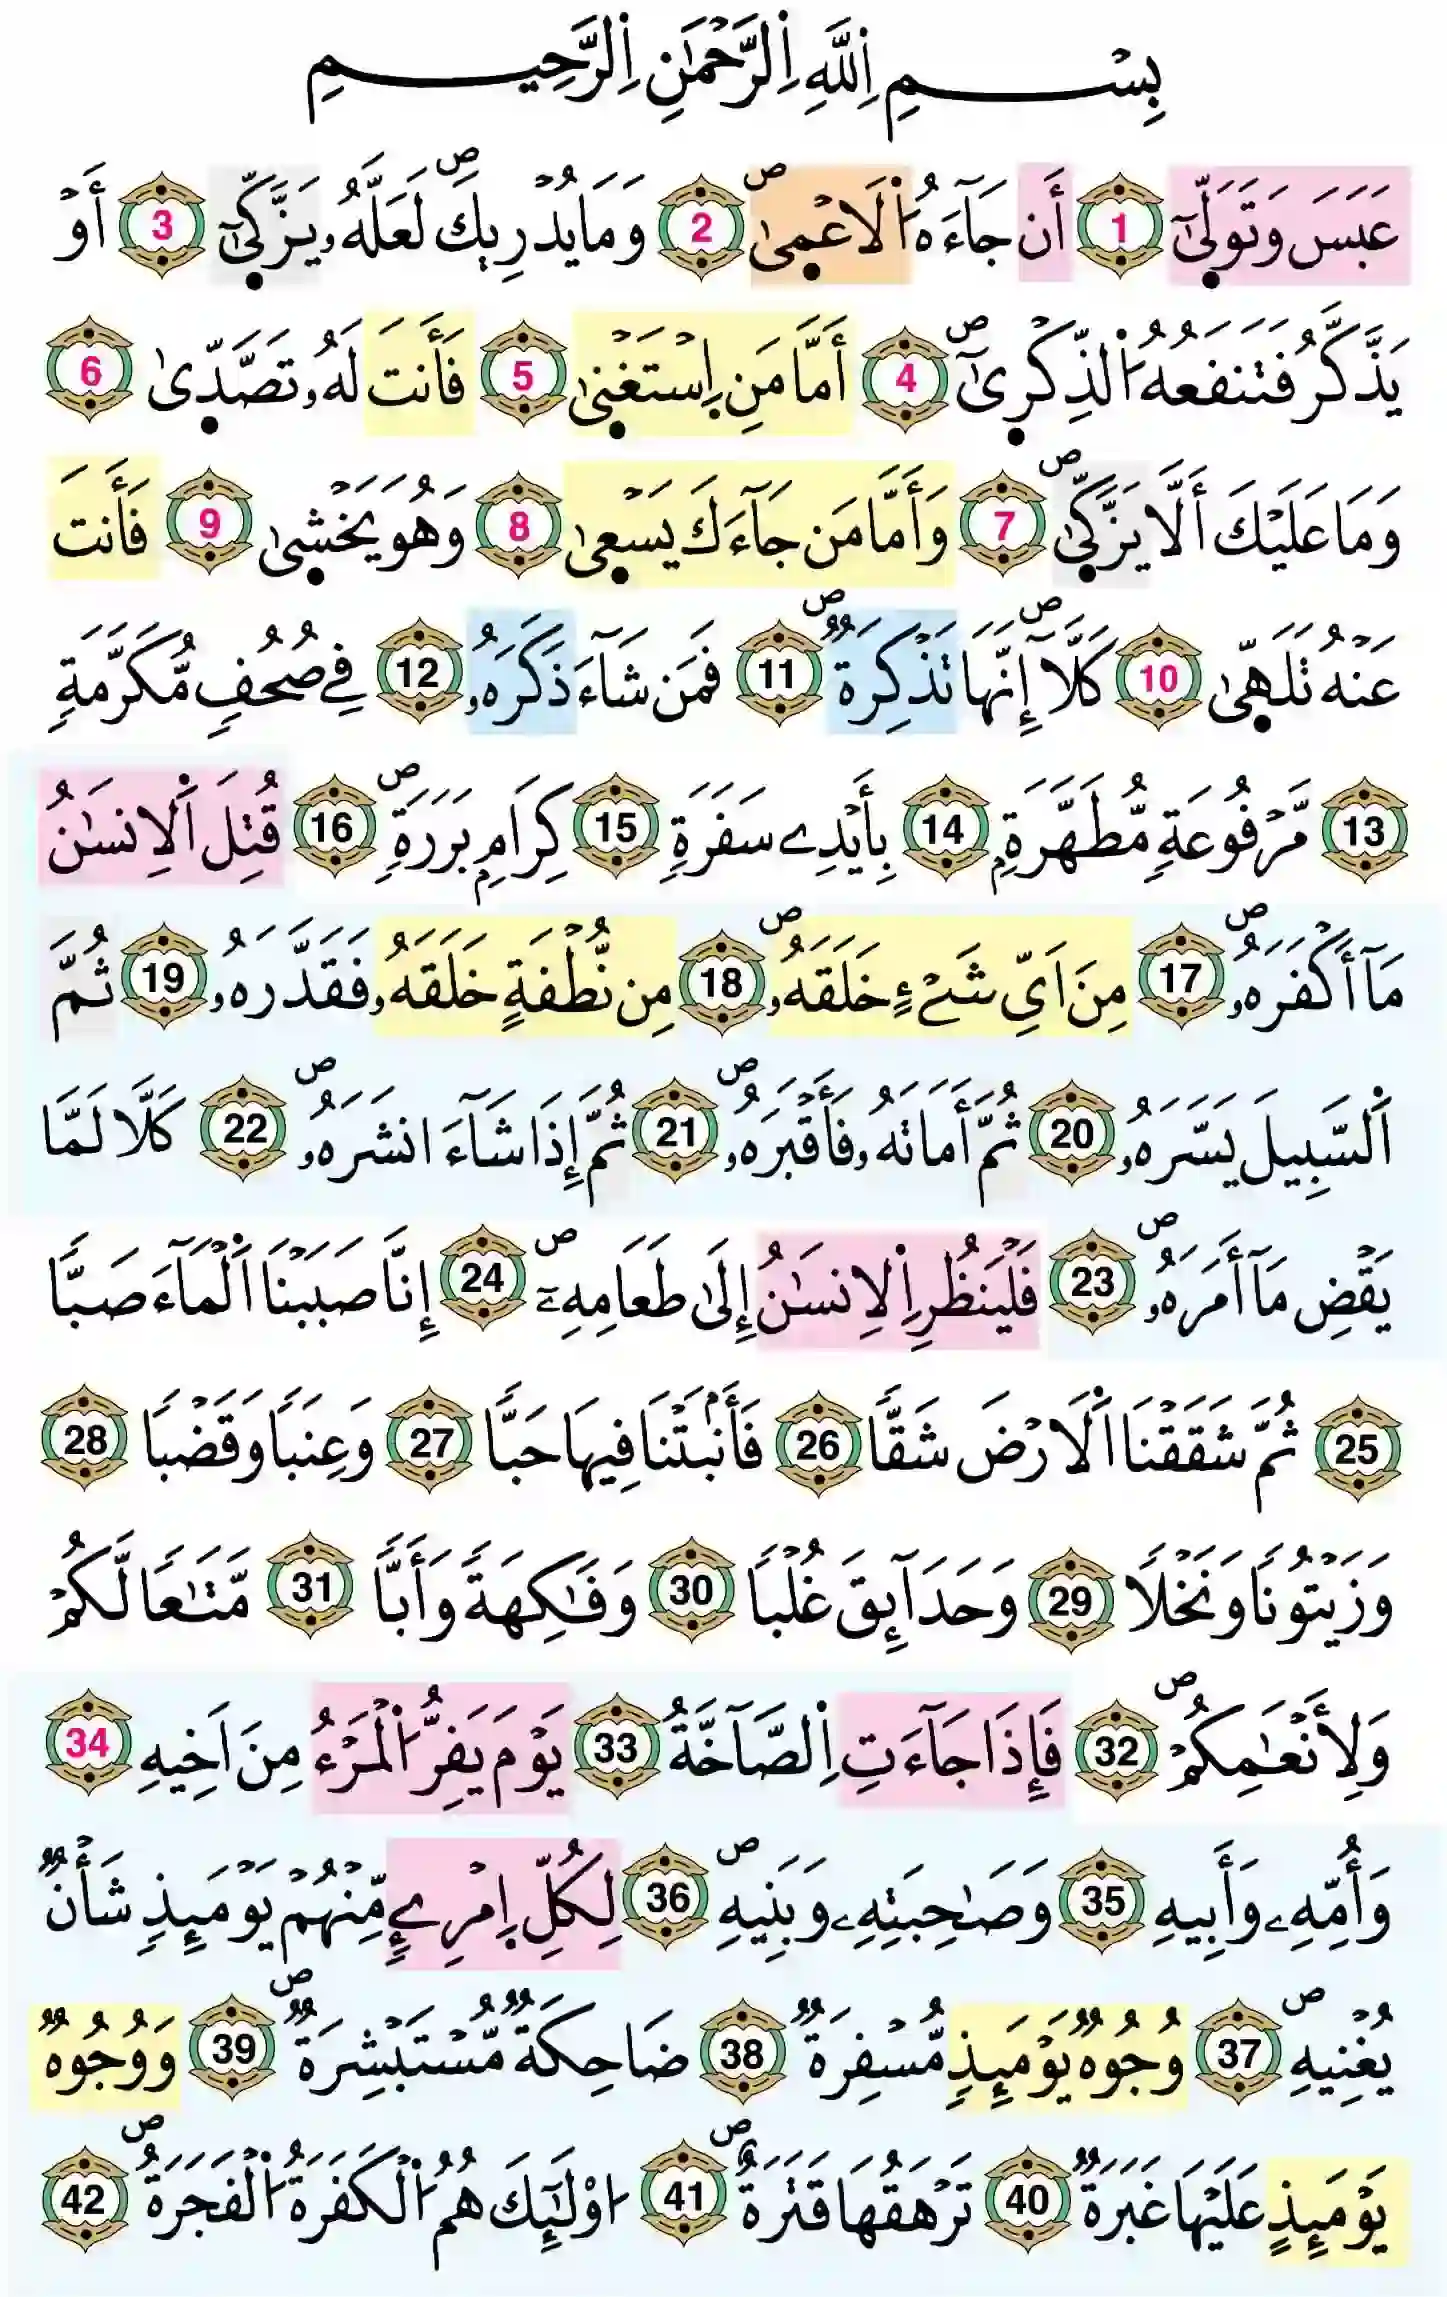 بِسْمِ اِ۬للَّهِ اِ۬لرَّحْمَٰنِ اِ۬لرَّحِيمِ
عَبَسَ وَتَوَلَّىٰٓ 1 أَن جَآءَهُ اُ۬لَاعْمَىٰ ص 2 وَمَا يُدْرِيكَ ص لَعَلَّهُۥ يَزَّكَّىٰٓ 3 أَوْ
يَذَّكَّرُ فَتَنفَعُهُ اُ۬لذِّكْر۪ىٰٓ ص 4 أَمَّا مَنِ اِ۪سْتَغْنَىٰ 5 فَأَنتَ لَهُۥ تَصَّدَّىٰ 6
وَمَا عَلَيْكَ أَلَّا يَزَّكَّىٰ ص 7 وَأَمَّا مَن جَآءَكَ يَسْعَىٰ 8 وَهُوَ يَخْشَىٰ 9 فَأَنتَ
عَنْهُ تَلَهَّىٰ 10 كَلَّآ ص إِنَّهَا تَذْكِرَةٌ ص 11 فَمَن شَآءَ ذَكَرَهُۥ 12 فِے صُحُفٍ مُّكَرَّمَةٍ
13 مَّرْفُوعَةٍ مُّطَهَّرَةِۢ 14 بِأَيْدِے سَفَرَةٍ 15 كِرَامِۢ بَرَرَةٍ ص 16 قُتِلَ اَ۬لِانسَٰنُ
مَآ أَكْفَرَهُۥ ص 17 مِنَ اَيِّ شَےْءٍ خَلَقَهُۥ ص 18 مِن نُّطْفَةٍ خَلَقَهُۥ فَقَدَّرَهُۥ 19 ثُمَّ
اَ۬لسَّبِيلَ يَسَّرَهُۥ 20 ثُمَّ أَمَاتَهُۥ فَأَقْبَرَهُۥ ص 21 ثُمَّ إِذَا شَآءَ انشَرَهُۥ ص 22 كَلَّا لَمَّا
يَقْضِ مَآ أَمَرَهُۥ ص 23 فَلْيَنظُرِ اِ۬لِانسَٰنُ إِلَىٰ طَعَامِهِۦٓ ص 24 إِنَّا صَبَبْنَا اَ۬لْمَآءَ صَبّاً
25 ثُمَّ شَقَقْنَا اَ۬لَارْضَ شَقّاً 26 فَأَنۢبَتْنَا فِيهَا حَبّاً 27 وَعِنَباً وَقَضْباً 28
وَزَيْتُوناً وَنَخْلاً 29 وَحَدَآئِقَ غُلْباً 30 وَفَٰكِهَةً وَأَبّاً 31 مَّتَٰعاً لَّكُمْ
وَلِأَنْعَٰمِكُمْ ص 32 فَإِذَا جَآءَتِ اِ۬لصَّآخَّةُ 33 يَوْمَ يَفِرُّ اُ۬لْمَرْءُ مِنَ اَخِيهِ 34
وَأُمِّهِۦ وَأَبِيهِ 35 وَصَٰحِبَتِهِۦ وَبَنِيهِ ص 36 لِكُلِّ اِ۪مْرِےٍٕ مِّنْهُمْ يَوْمَئِذٍ شَأْنٌ
يُغْنِيهِ ص 37 وُجُوهٌ يَوْمَئِذٍ مُّسْفِرَةٌ 38 ضَاحِكَةٌ مُّسْتَبْشِرَةٌ ص 39 وَوُجُوهٌ
يَوْمَئِذٍ عَلَيْهَا غَبَرَةٌ 40 تَرْهَقُهَا قَتَرَةٌ ص 41 ا۟وْلَٰٓئِكَ هُمُ اُ۬لْكَفَرَةُ اُ۬لْفَجَرَةُ ص 42